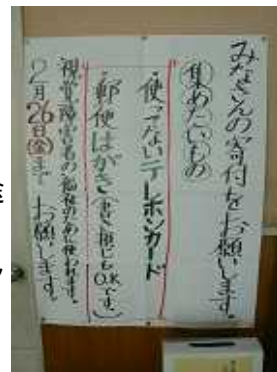 みなさんの寄付をお願いします。
集めたいもの
・使ってないテレホンカード
・郵便はがき(書き損じもO.Kです。)
視覚障害者の福祉のために使われます。
2月26日(金)まで お願いします。